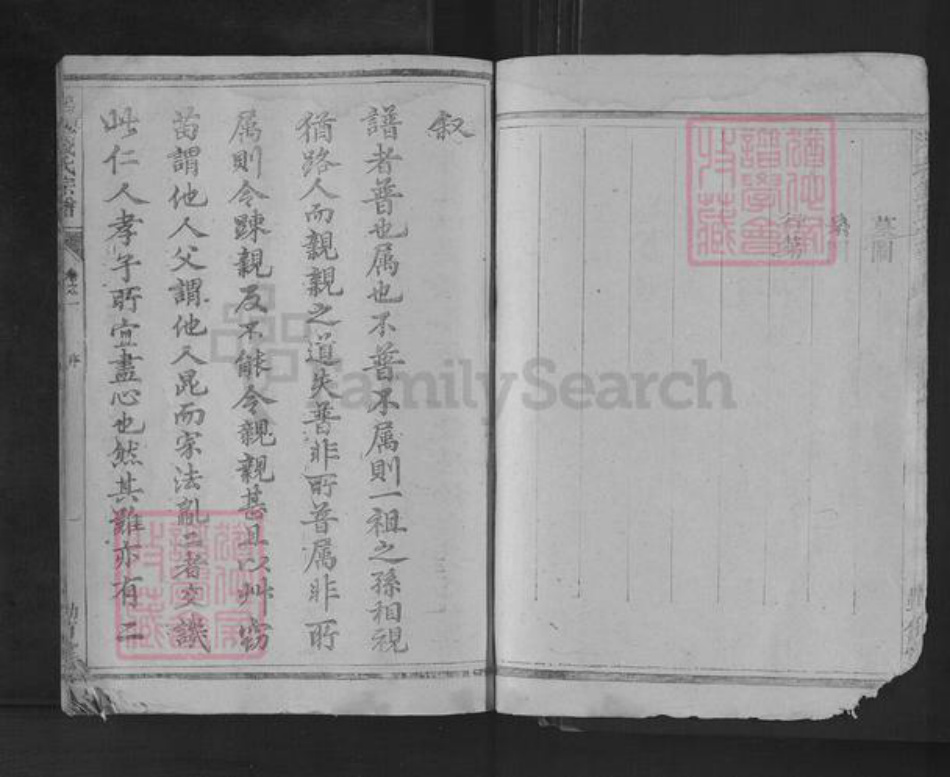 墓圖
叙
譜者普也属也不普不属則一祖之孫相視
猶路人而親親之道失普非所普属非所
属則令踈親反不能令親親甚且以艸窃
苗謂他人父謂他人昆而宗法亂二者交譏
此仁人孝子所宜盡心也然其難亦有二
氏宗譜
卷之一
序
一
FamilySearch